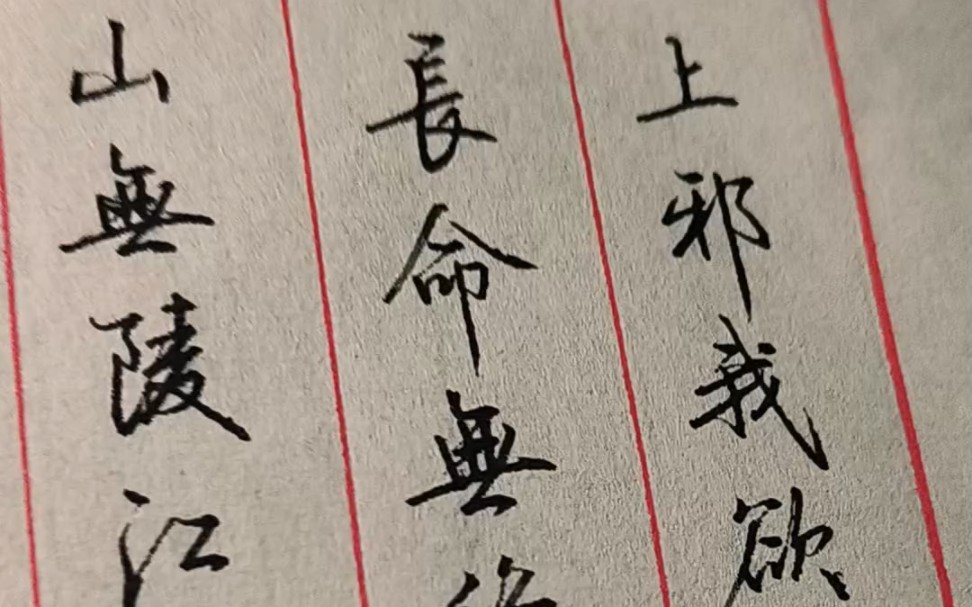 上邪我欲
長命無
山無陵江